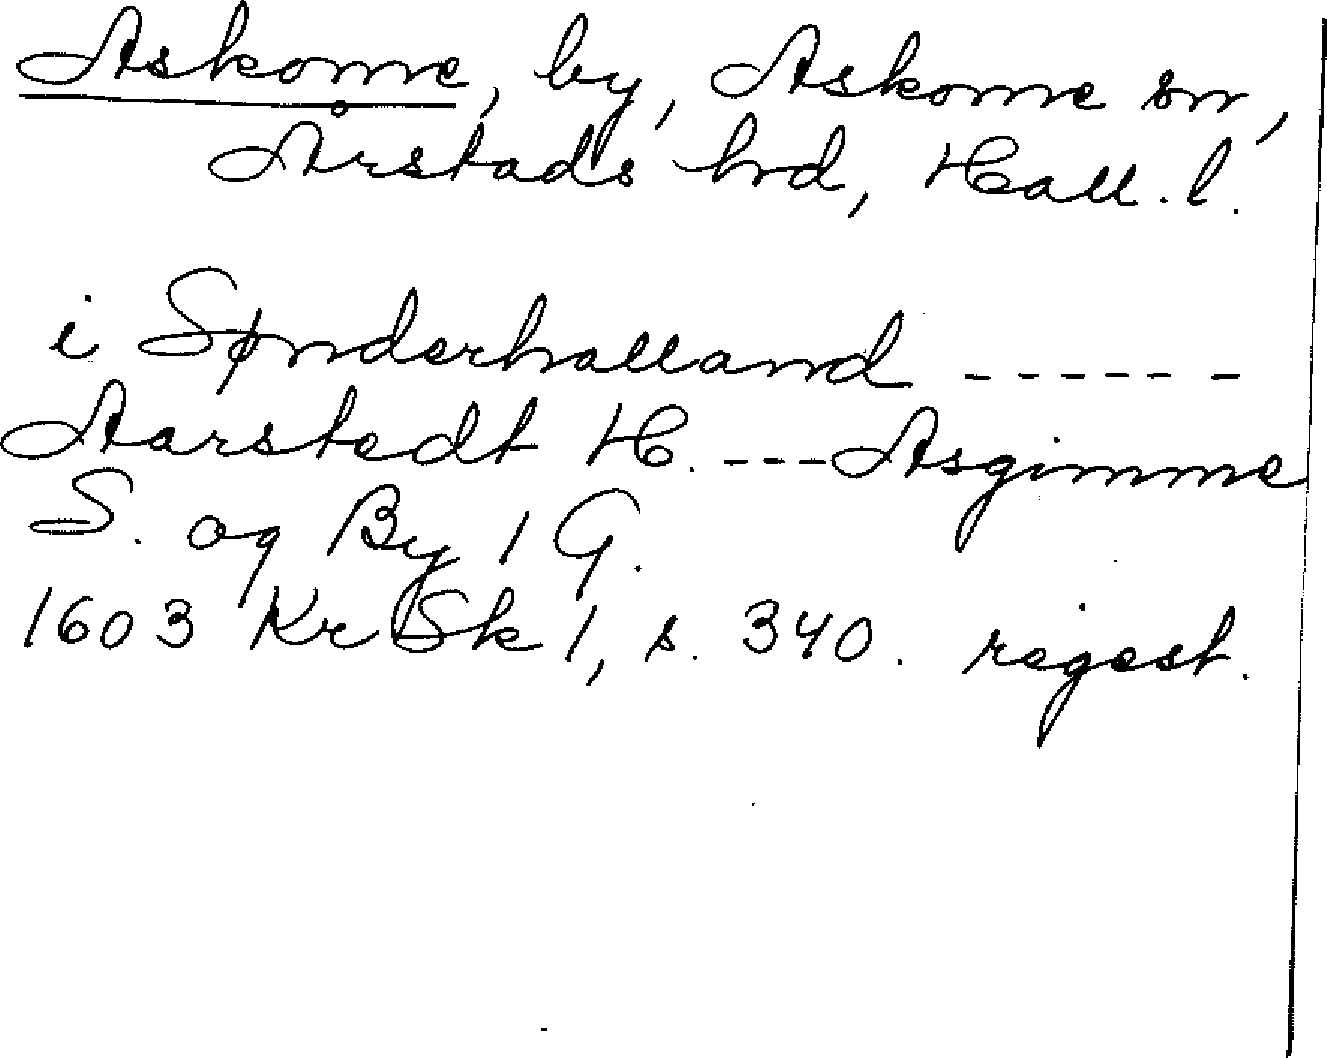 Askome, by, Askome sn,
Årstads hrd, Hall. l.
i Sønderhalland ------
Aarstedt H. --- Asgimme
S. og By 1 G.
1603 KrSk 1, s. 340. regest.